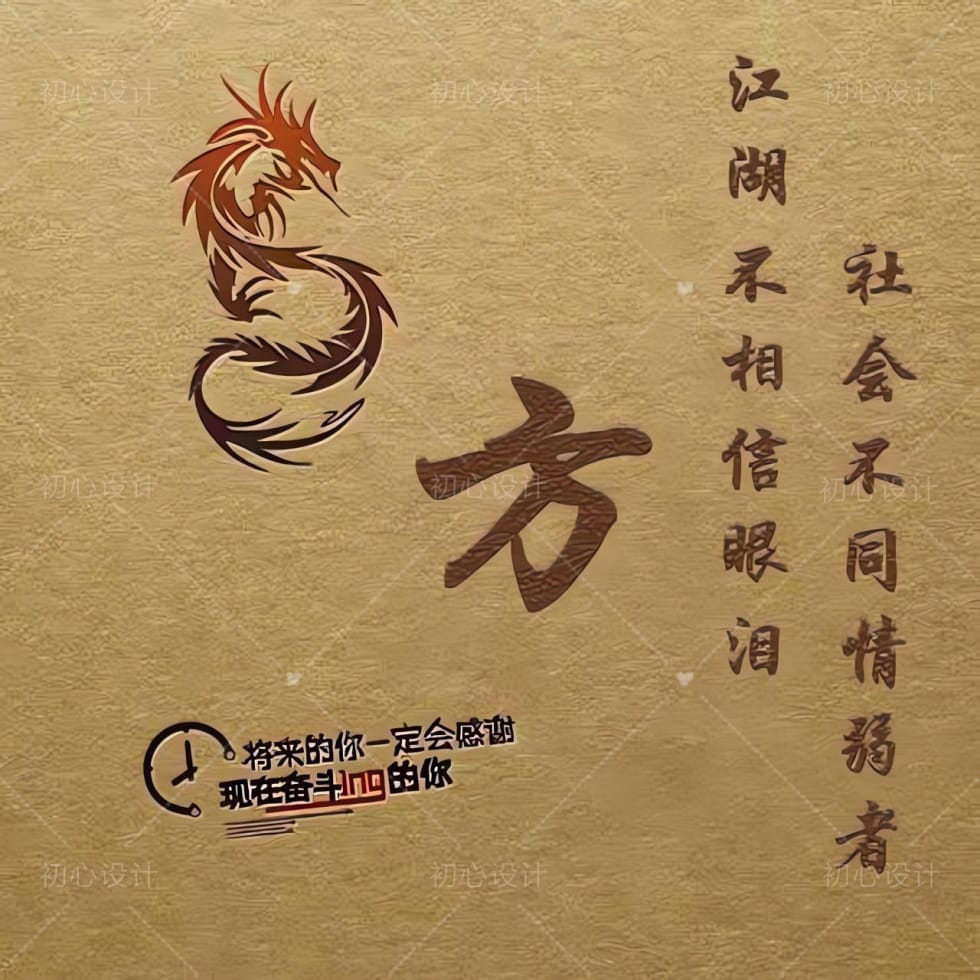 社会不同情弱者
江湖不相信眼泪
方
将来的你一定会感谢
现在奋斗的你
初心设计
初心设计
初心设计
初心设计
初心设计
初心设计
初心设计
初心设计
初心设计